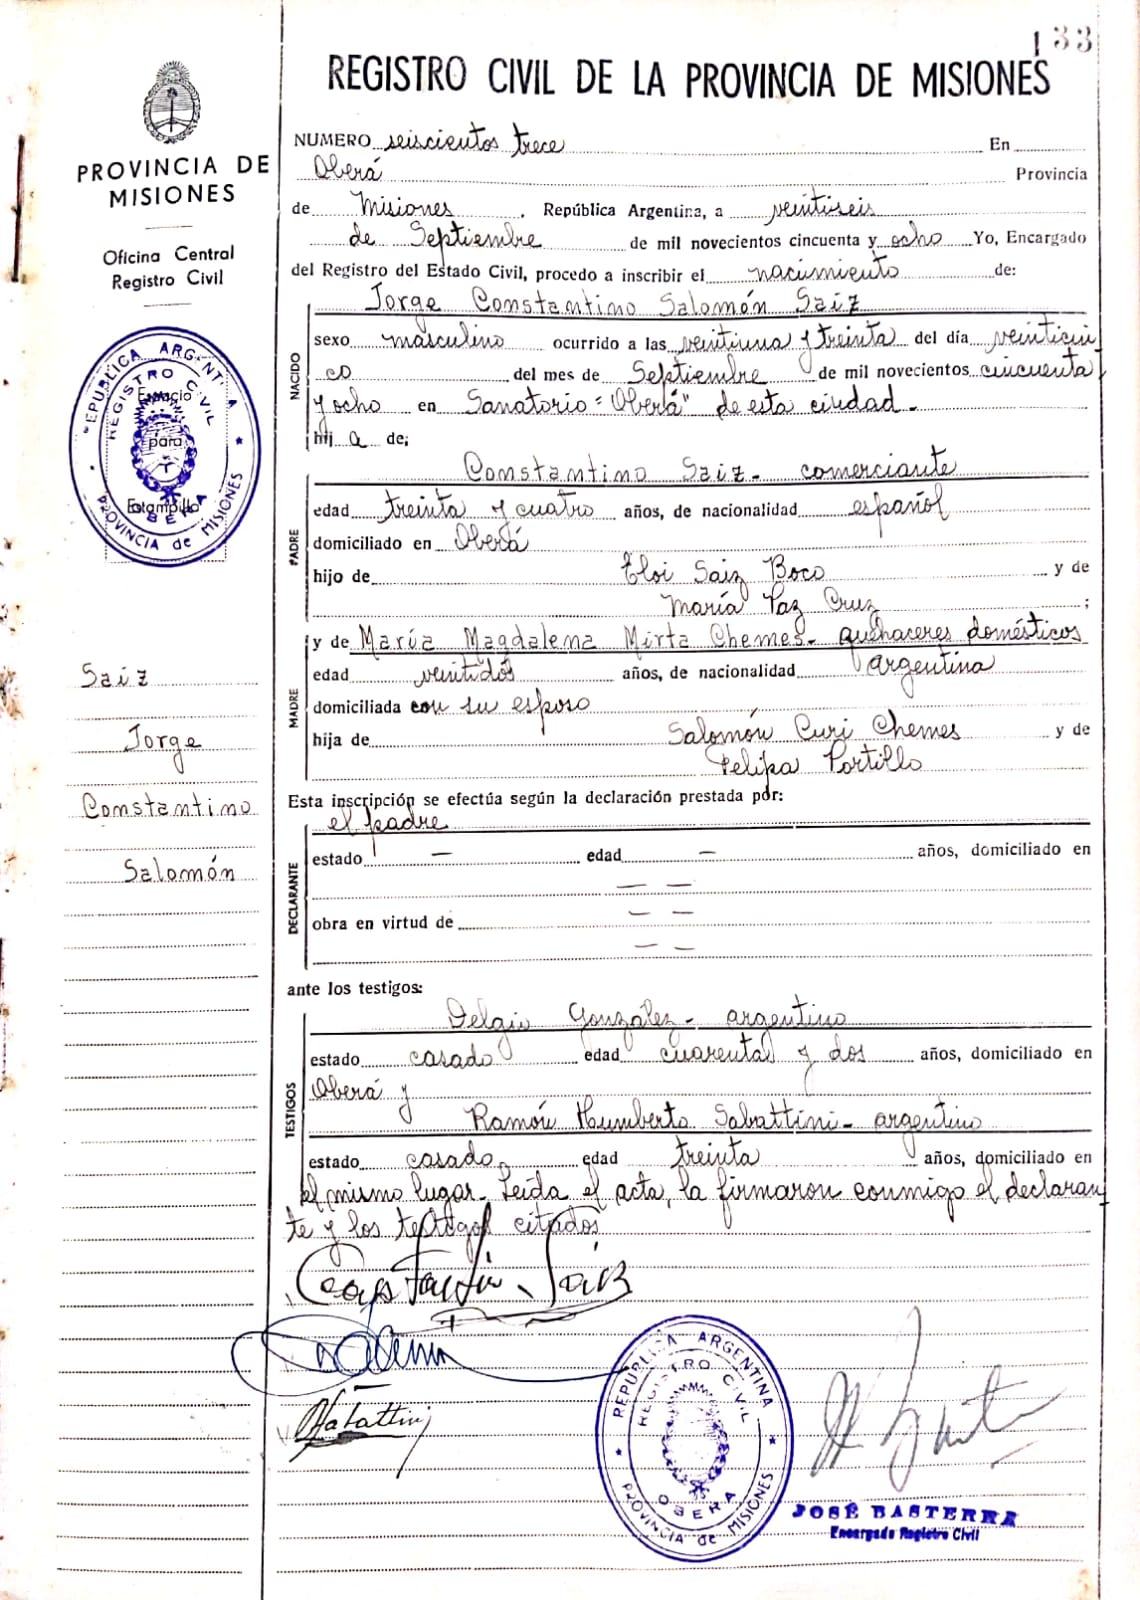 133
REGISTRO CIVIL DE LA PROVINCIA DE MISIONES
PROVINCIA DE
MISIONES
Oficina Central
Registro Civil
REPUBLICA ARGENTINA
REGISTRO CIVIL
OBERA
PROVINCIA de MISIONES
Espacio
para
Estampilla
Saiz
Jorge
Constantino
Salomón
NUMERO seiscientos trece En
Oberá Provincia
de Misiones, República Argentina, a veintiseis
de Septiembre de mil novecientos cincuenta y ocho Yo, Encargado
del Registro del Estado Civil, procedo a inscribir el nacimiento de:
NACIDO
Jorge Constantino Salomón Saiz
sexo masculino ocurrido a las veintiuna y treinta del día veinticin
co del mes de Septiembre de mil novecientos cincuenta
y ocho en Sanatorio "Oberá" de esta ciudad.
hij o de;
PADRE
Constantino Saiz - comerciante
edad treinta y cuatro años, de nacionalidad español
domiciliado en Oberá
hijo de Eloi Saiz Boco y de
María Paz Cruz ;
MADRE
y de María Magdalena Mirta Chemes - quehaceres domésticos
edad veintidós años, de nacionalidad argentina
domiciliada con su esposo
hija de Salomón Curi Chemes y de
Felipa Portillo
Esta inscripción se efectúa según la declaración prestada por:
DECLARANTE
el padre
estado — edad — años, domiciliado en
— —
obra en virtud de — —
— —
ante los testigos:
TESTIGOS
Delgio González - argentino
estado casado edad cuarenta y dos años, domiciliado en
Oberá y
Ramón Humberto Sabattini - argentino
estado casado edad treinta años, domiciliado en
el mismo lugar - Leída el acta, la firmaron conmigo el declaran
te y los testigos citados
Constantin Saiz
Sabattini
REPUBLICA ARGENTINA
REGISTRO CIVIL
OBERA
PROVINCIA de MISIONES
JOSÉ BASTERRA
Encargado Registro Civil